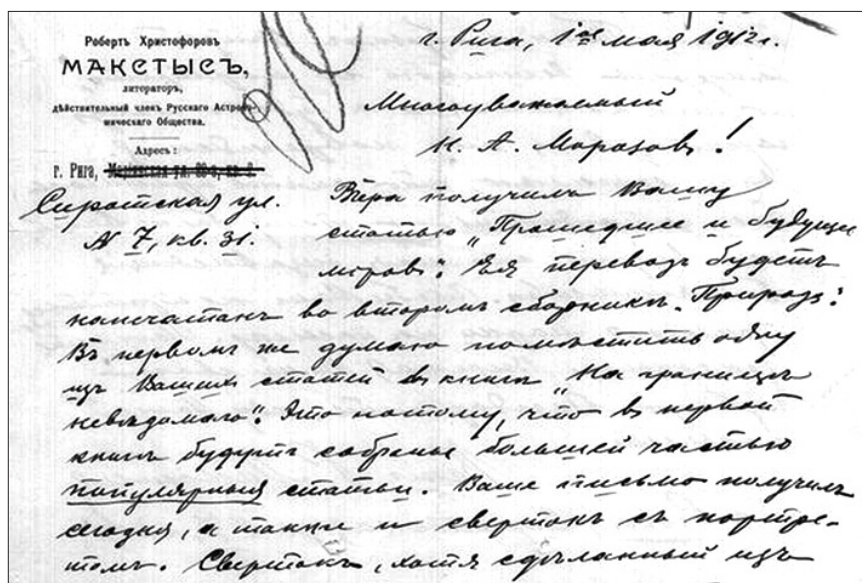 Робертъ Христофоровъ
МАКСТЫСЪ,
литераторъ,
дѣйствительный членъ Русскаго Астроно-
мическаго Общества.
Адресъ:
г. Рига,
Сиротская ул.
№ 7, кв. 31.
г. Рига, 1ое мая 1912 г.
Многоуважаемый
Н. А. Морозовъ!
Вчера получилъ Вашу
статью „Прошедшее и будущее
міровъ“. Ея переводъ будетъ
напечатанъ во второмъ сборникѣ „Природа“.
Въ первомъ же думаю помѣстить одну
изъ Вашихъ статей въ книгѣ „На границѣ
невѣдомаго“. Это потому, что въ первой
книгѣ будутъ собраны большей частью
популярныя статьи. Ваше письмо получилъ
сегодня, а также и свертокъ съ портре-
томъ. Свертокъ, хотя сдѣланный изъ